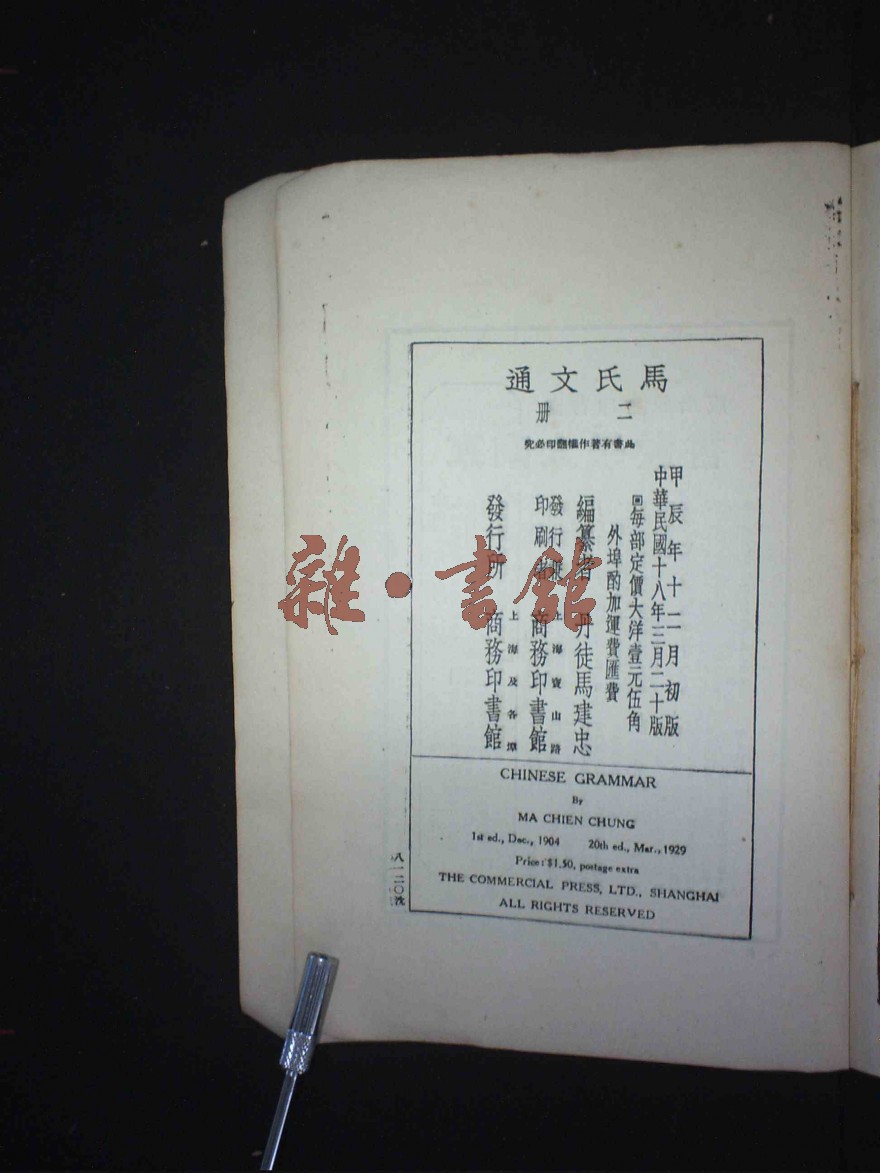 馬氏文通
二册
此書有著作權翻印必究
甲辰年十二月初版
中華民國十八年三月二十版
回每部定價大洋壹元伍角
外埠酌加運費匯費
編纂者 丹徒馬建忠
發行兼
印刷者
上海寶山路
商務印書館
發行所
上海及各埠
商務印書館
CHINESE GRAMMAR
By
MA CHIEN CHUNG
1st ed., Dec., 1904 20th ed., Mar., 1929
Price: $1.50, postage extra
THE COMMERCIAL PRESS, LTD., SHANGHAI
ALL RIGHTS RESERVED
八一二〇
雜·書館